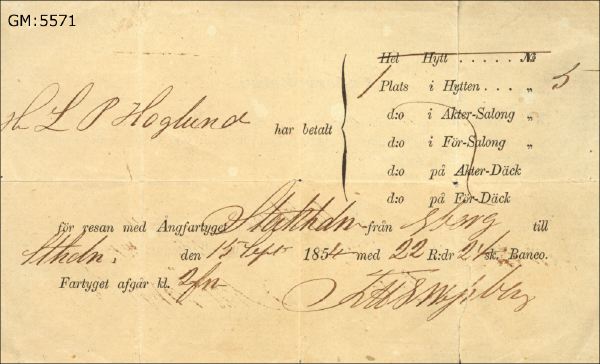 GM:5571
Hel Hytt . . . . . . №
1 Plats i Hytten . . . . „ 5
d:o i Akter-Salong „
H L P Hoglund har betalt
d:o i För-Salong „
d:o på Akter-Däck
d:o på För-Däck
för resan med Ångfartyget från till
Sthlm. den 15 Sept 1854 med 22 R:dr 24 sk. Banco.
Fartyget afgår kl. 2 fm